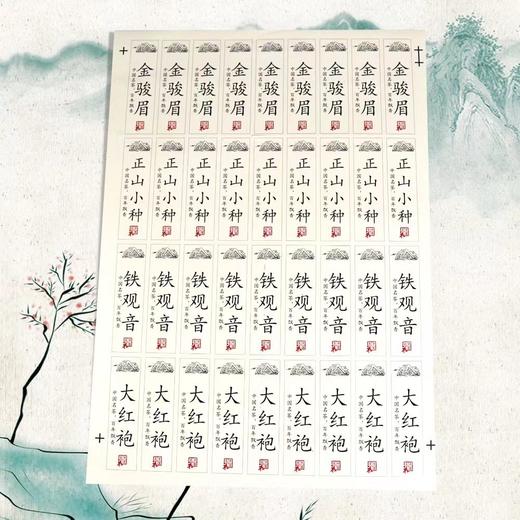 金骏眉
中国名茶，百年飘香
金骏眉
中国名茶，百年飘香
金骏眉
中国名茶，百年飘香
金骏眉
中国名茶，百年飘香
金骏眉
中国名茶，百年飘香
金骏眉
中国名茶，百年飘香
金骏眉
中国名茶，百年飘香
金骏眉
中国名茶，百年飘香
金骏眉
中国名茶，百年飘香
正山小种
中国名茶，百年飘香
正山小种
中国名茶，百年飘香
正山小种
中国名茶，百年飘香
正山小种
中国名茶，百年飘香
正山小种
中国名茶，百年飘香
正山小种
中国名茶，百年飘香
正山小种
中国名茶，百年飘香
正山小种
中国名茶，百年飘香
正山小种
中国名茶，百年飘香
铁观音
中国名茶，百年飘香
铁观音
中国名茶，百年飘香
铁观音
中国名茶，百年飘香
铁观音
中国名茶，百年飘香
铁观音
中国名茶，百年飘香
铁观音
中国名茶，百年飘香
铁观音
中国名茶，百年飘香
铁观音
中国名茶，百年飘香
铁观音
中国名茶，百年飘香
大红袍
中国名茶，百年飘香
大红袍
中国名茶，百年飘香
大红袍
中国名茶，百年飘香
大红袍
中国名茶，百年飘香
大红袍
中国名茶，百年飘香
大红袍
中国名茶，百年飘香
大红袍
中国名茶，百年飘香
大红袍
中国名茶，百年飘香
大红袍
中国名茶，百年飘香